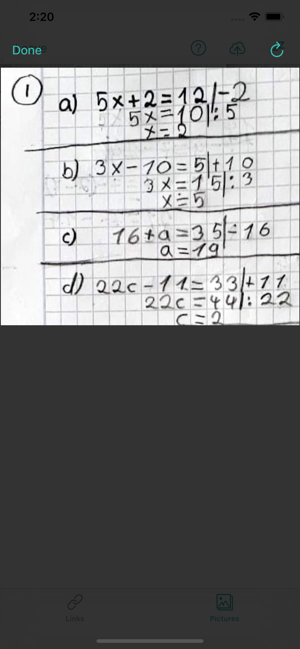 2:20
Done
1
a) 5x+2=12|-2
5x=10|:5
x=2
b) 3x-10=5|+10
3x=15|:3
x=5
c) 16+a=35|-16
a=19
d) 22c-11=33|+11
22c=44|:22
c=2
Links
Pictures